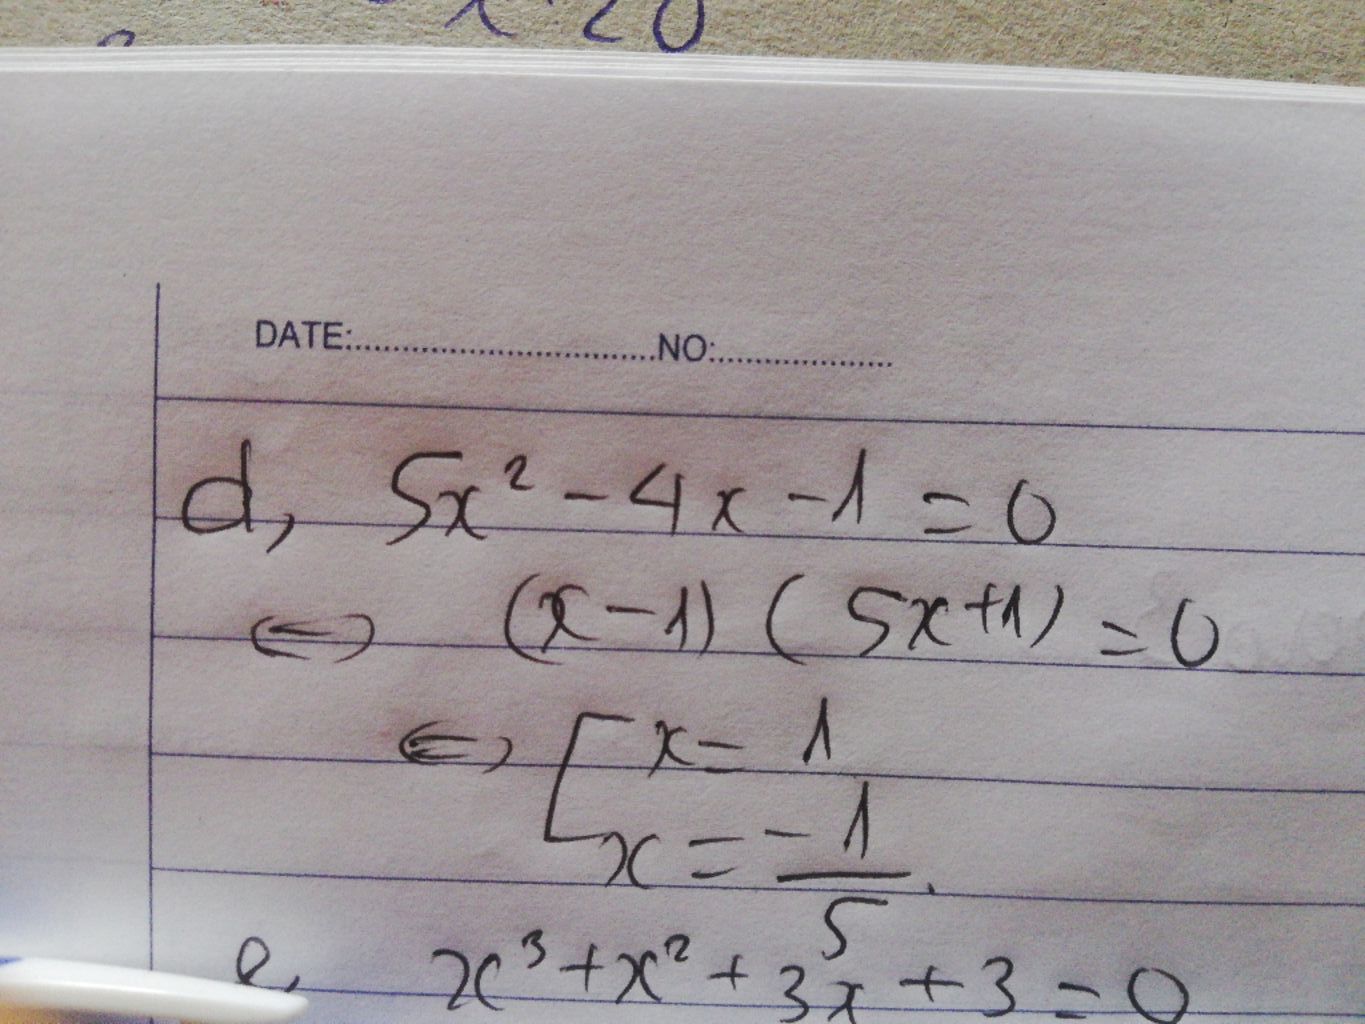 x . 20
DATE:..............................NO:..................
d, 5x² - 4x - 1 = 0
<=> (x - 1) ( 5x + 1) = 0
<=> [ x = 1
x = -1/5 .
e, x³ + x² + 3x + 3 = 0